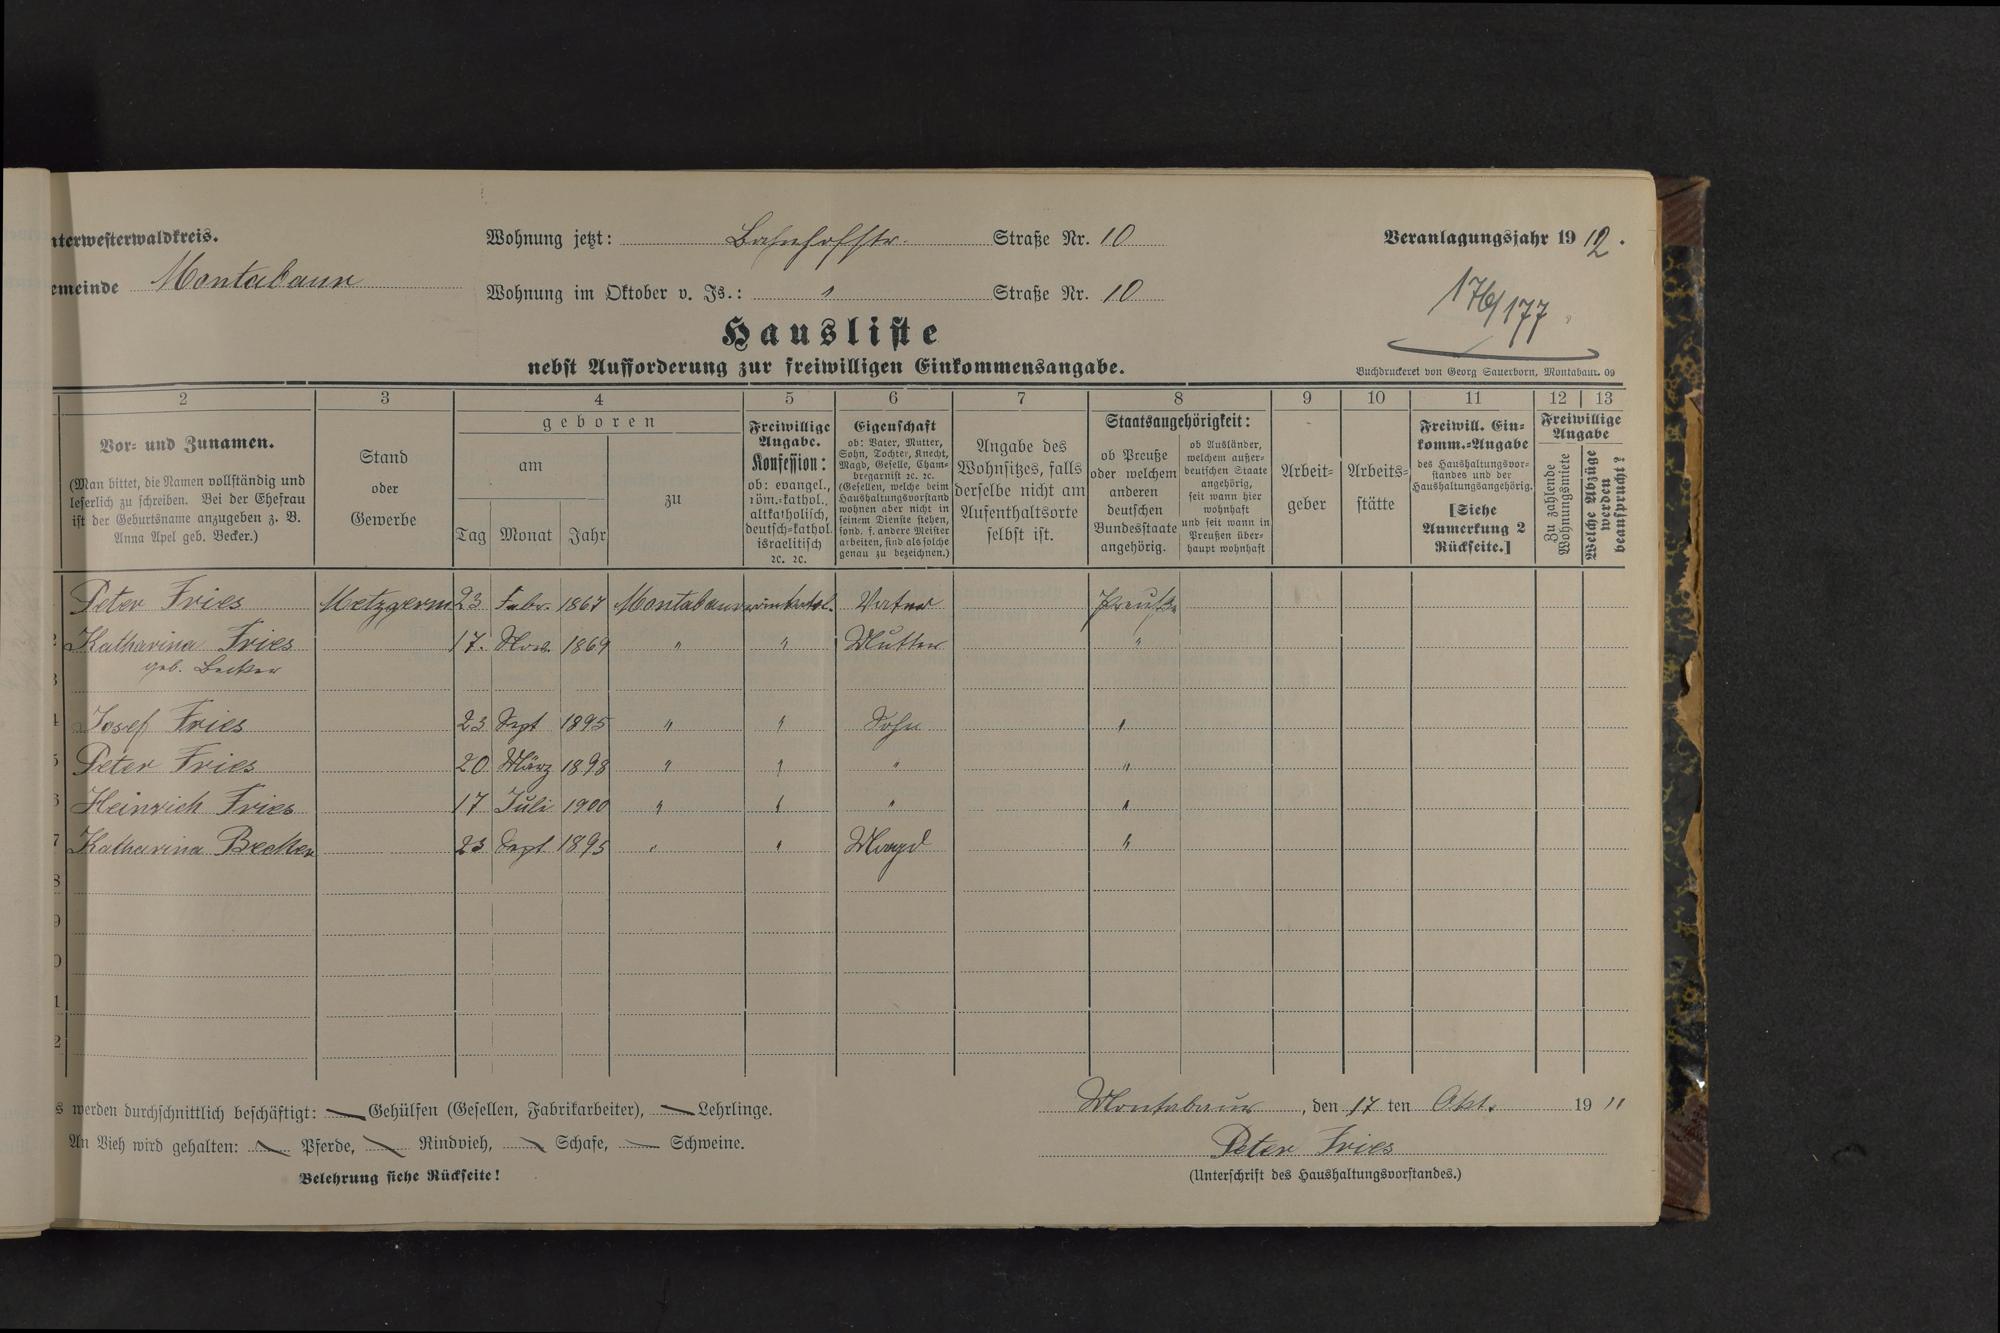 nterwesterwaldkreis.
Wohnung jetzt: Bahnhofstr. Straße Nr. 10
Veranlagungsjahr 1912.
emeinde Montabaur
Wohnung im Oktober v. Js.: " Straße Nr. 10
176/177
Hausliste
nebst Aufforderung zur freiwilligen Einkommensangabe.
Buchdruckerei von Georg Sauerborn, Montabaur. 09
2 3 4 5 6 7 8 9 10 11 12 13
Vor- und Zunamen.
(Man bittet, die Namen vollständig und
leserlich zu schreiben. Bei der Ehefrau
ist der Geburtsname anzugeben z. B.
Anna Apel geb. Becker.)
Stand
oder
Gewerbe
geboren
am
zu
Tag Monat Jahr
Freiwillige
Angabe.
Konfession:
ob: evangel.,
röm.-kathol.,
altkatholisch,
deutsch-kathol.
israelitisch
ꝛc. ꝛc.
Eigenschaft
ob: Vater, Mutter,
Sohn, Tochter, Knecht,
Magd, Geselle, Cham-
bregarnist ꝛc. ꝛc.
(Gesellen, welche beim
Haushaltungsvorstand
wohnen aber nicht in
seinem Dienste stehen,
sond. f. andere Meister
arbeiten, sind als solche
genau zu bezeichnen.)
Angabe des
Wohnsitzes, falls
derselbe nicht am
Aufenthaltsorte
selbst ist.
Staatsangehörigkeit:
ob Preuße
oder welchem
anderen
deutschen
Bundesstaate
angehörig.
ob Ausländer,
welchem außer-
deutschen Staate
angehörig,
seit wann hier
wohnhaft
und seit wann in
Preußen über-
haupt wohnhaft
Arbeit-
geber
Arbeits-
stätte
Freiwill. Ein-
komm.-Angabe
des Haushaltungsvor-
standes und der
Haushaltungsangehörig.
[Siehe
Anmerkung 2
Rückseite.]
Freiwillige
Angabe
Zu zahlende
Wohnungsmiete
Welche Abzüge
werden
beansprucht?
Peter Fries Metzgerm 23 Febr. 1867 Montabaur röm. kathol. Vater Preuße
2 Katharina Fries 17. Nov. 1869 " " Mutter "
geb. Becker
3
4 Josef Fries 23 Sept 1895 " " Sohn "
5 Peter Fries 20 März 1898 " " " "
6 Heinrich Fries 17 Juli 1900 " " " "
7 Katharina Becker 23 Sept 1895 " " Magd "
8
9
0
1
2
s werden durchschnittlich beschäftigt: — Gehülfen (Gesellen, Fabrikarbeiter), — Lehrlinge.
An Vieh wird gehalten: — Pferde, — Rindvieh, — Schafe, — Schweine.
Belehrung siehe Rückseite!
Montabaur, den 17 ten Okt. 1911
Peter Fries
(Unterschrift des Haushaltungsvorstandes.)